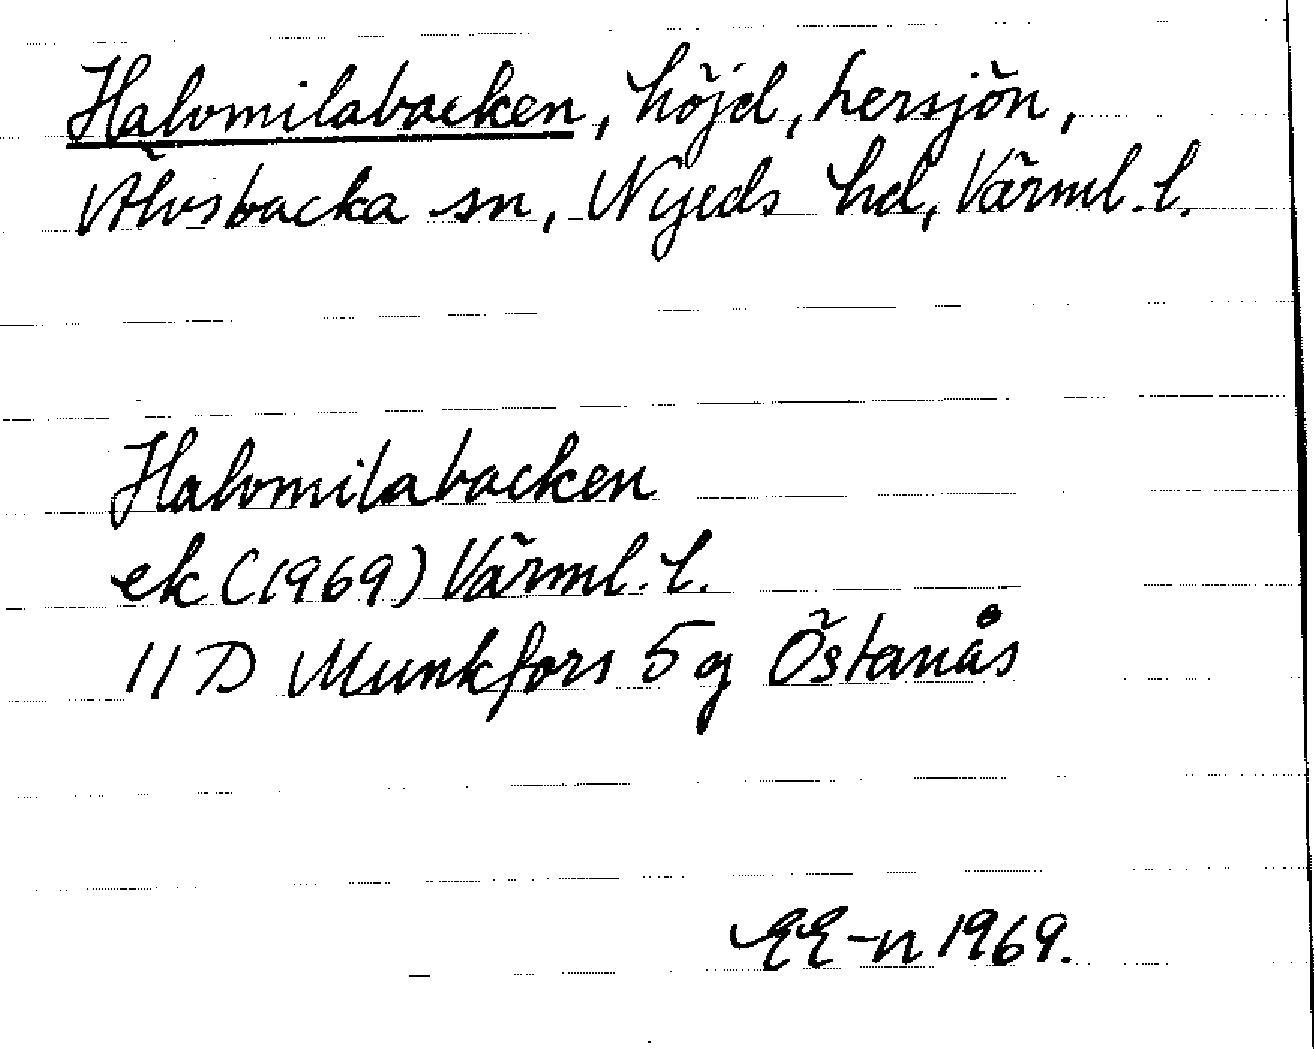 Halvmilabacken, höjd, Lersjön,
Älvsbacka sn, Nyeds hd, Värml. l.
Halvmilabacken
ek (1969) Värml. l.
11 D Munkfors 5 g Östanås
EE-n 1969.